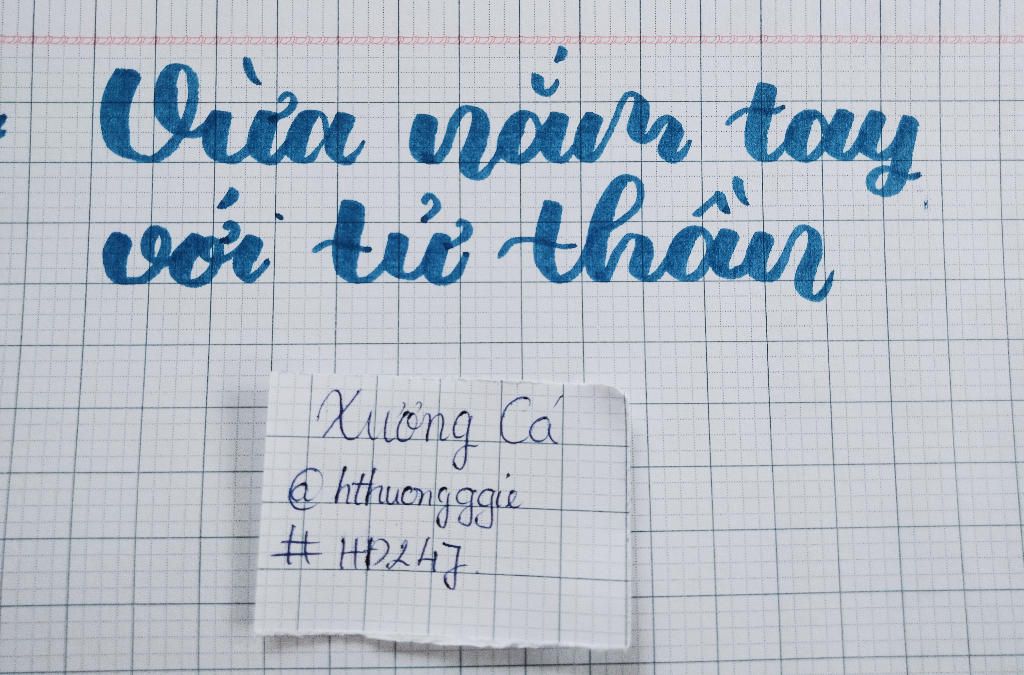 Vừa nắm tay
với tử thần
Xương Cá
@hthuongggie
#HD247